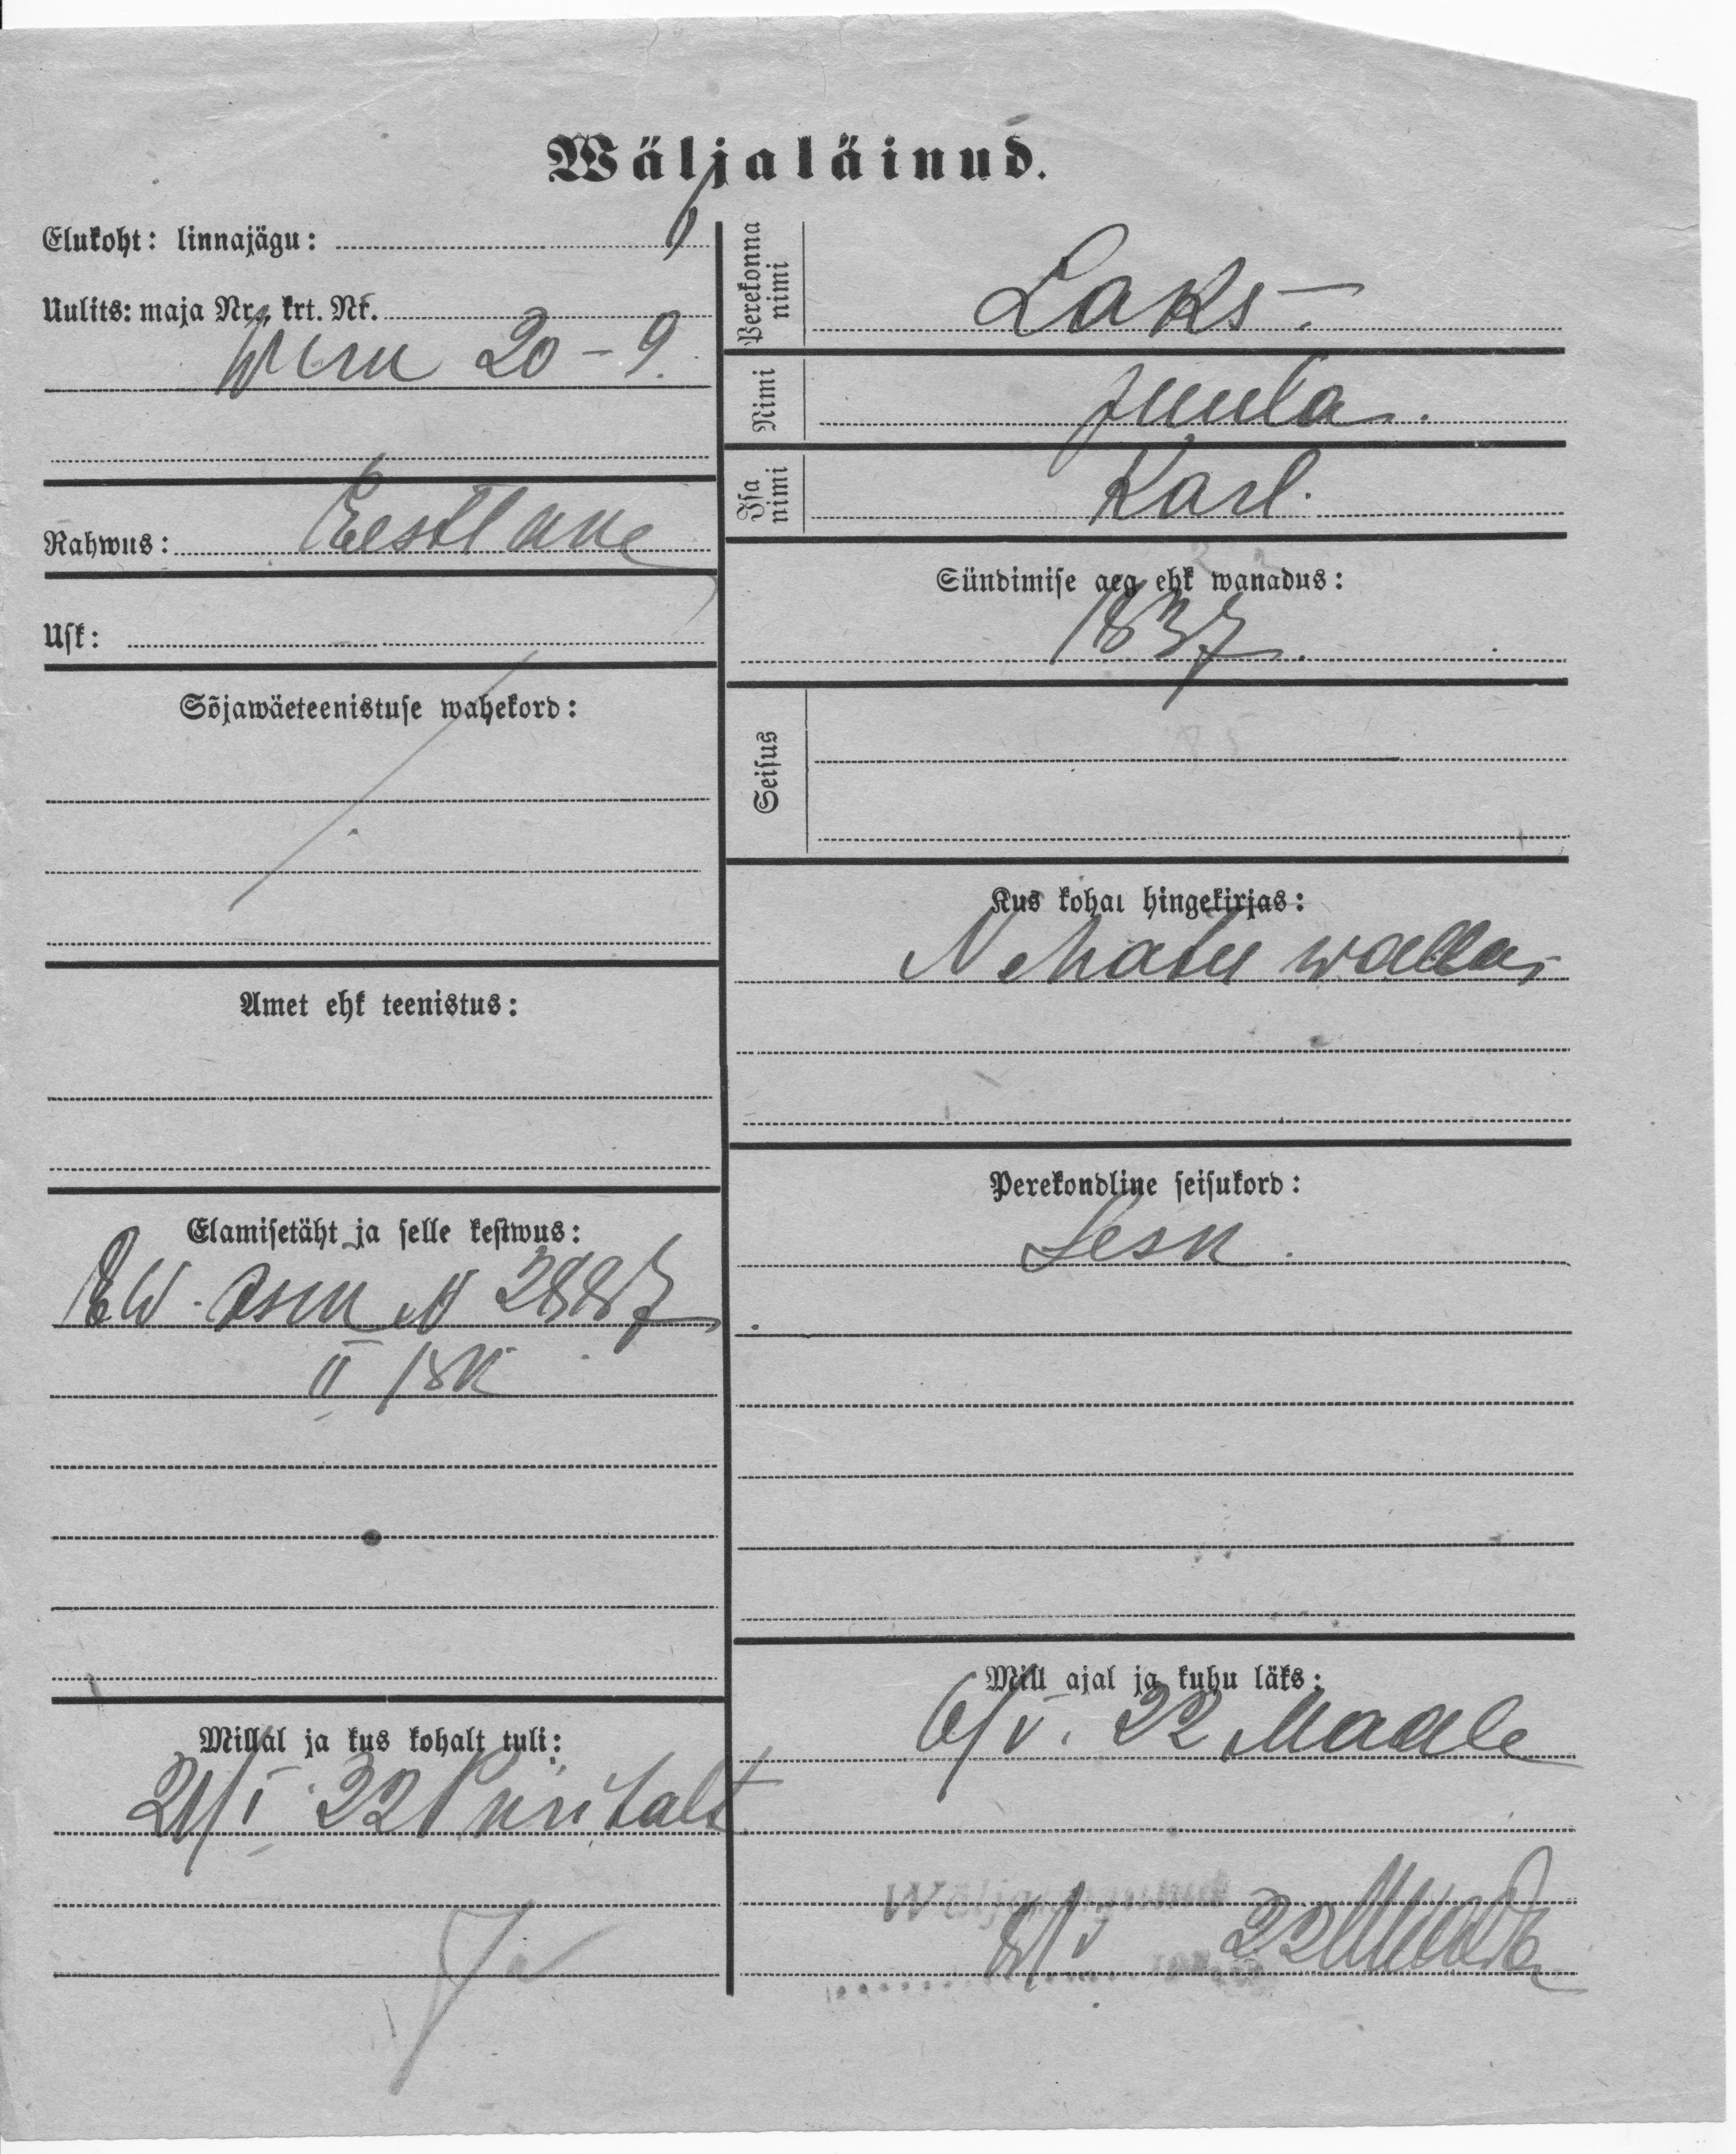 Wäljaläinud.
Elukoht: linnajägu:
Uulits: maja Nr., krt. Nr.
Wiru 20-9.
Rahwus: Eestlane
Usk:
Sõjawäeteenistuse wahekord:
Amet ehk teenistus:
Elamisetäht ja selle kestwus:
EW. N 2887
II
Millal ja kus kohalt tuli:
21/I 22
Perekonna nimi
Laks
Nimi
Juula.
Isa nimi
Karl.
Sündimise aeg ehk wanadus:
1837.
Seisus
Kus kohal hingekirjas:
Nehatu wallas
Perekondline seisukord:
Lesk.
Mill ajal ja kuhu läks:
6/V. 22 Maale
22